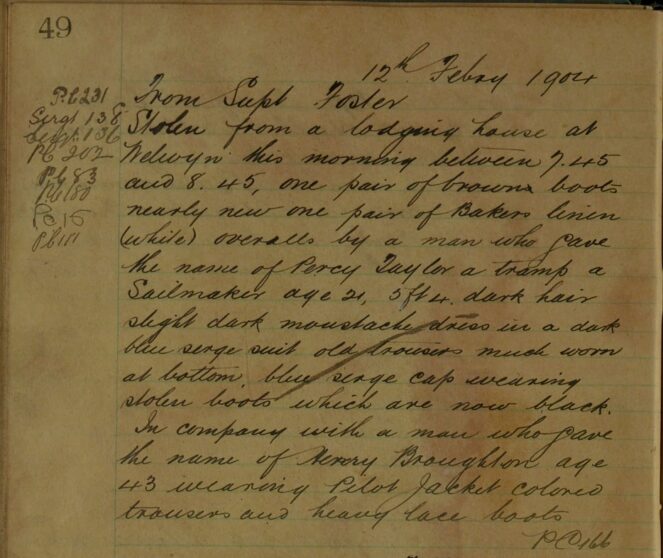 49
12th Febry 1904
P.C 231
Sergt 138
Sergt. 136
PC 202
PC 83
PC 180
PC 15
P.C 181
From Supt Foster
Stolen from a lodging house at
Welwyn this morning between 7.45
and 8.45, one pair of brown boots
nearly new one pair of Bakers linen
(white) overalls by a man who gave
the name of Percy Taylor a tramp a
Sailmaker age 21, 5ft 4. dark hair
slight dark moustache dress in a dark
blue serge suit old trousers much worn
at bottom, blue serge cap wearing
stolen boots which are now black.
In company with a man who gave
the name of Henry Broughton age
43 wearing Pilot Jacket colored
trousers and heavy lace boots
PC 166